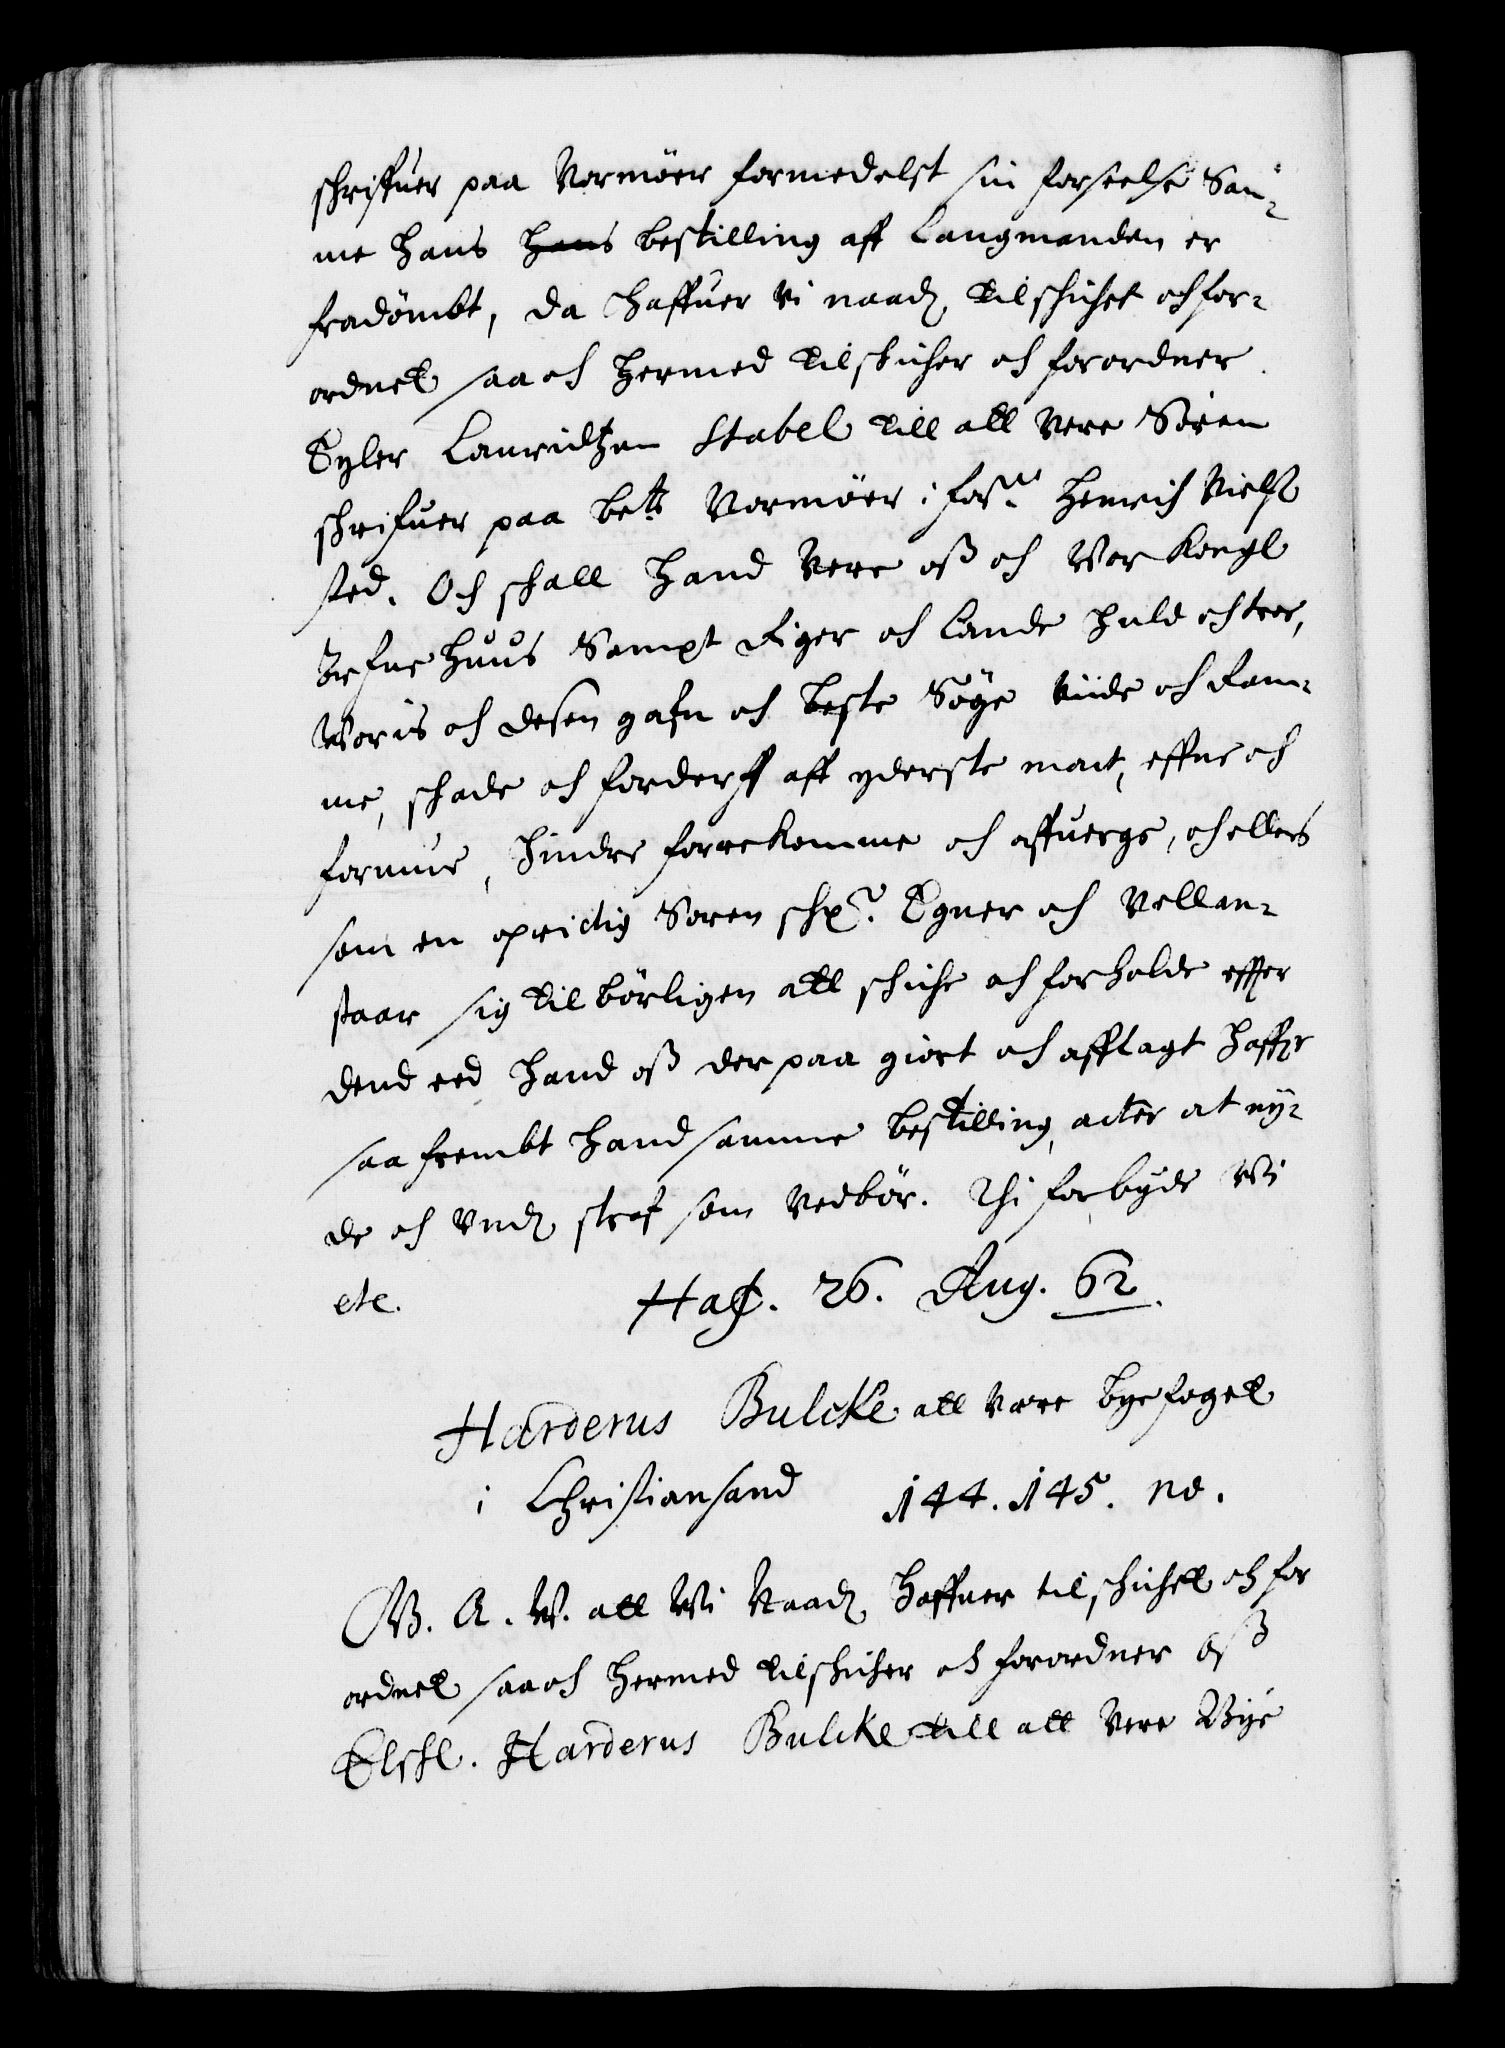 schriffuer paa Normöer formedelst sin forseelse Sam-
me hans hans bestilling aff Laugmanden er
fradömbt, da haffuer Vi naadl. tilschichet och for-
ordnet saa och hermed tilskicher och forordner
Eyler Lauridtzen Stabel till att vere Soren
schrifuer paa bete Normöer i forne Henrich Niels.
sted. Och schall hand vere oß och Vor Kongl
Arfue Huus Sampt Riger och Lande huld och troe,
Woris och desen gafn och beste Söge Viide och Ram-
me, schade och forderff aff yderste mact, effne och
formue, hindre forrekomme och affuerge, och ellers
som en oprictig Soren schr. Egner och vellan-
staar sig tilbörligen att schiche och forholde effter
dend eed hand oß der paa giort och afflagt haffr
saa frembt hand samme bestilling acter at ny-
de och undl straf som vedbör. Thi forbyde Wi
etc. Haf. 26. Aug. 62.
Harderus Bulcke att være byefoget
i Christiansand 144. 145. no.
W. A. W. att Wi Naadl haffuer tilschichet och for
ordnet saa och hermed tilschicher och forordner oß
Elschl. Harderus Bulcke till att vere Bye